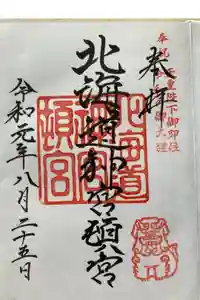 天皇陛下御即位
奉祝
奉拝
北海道神宮頓宮
北海道
神宮
頓宮
令和元年八月二十五日